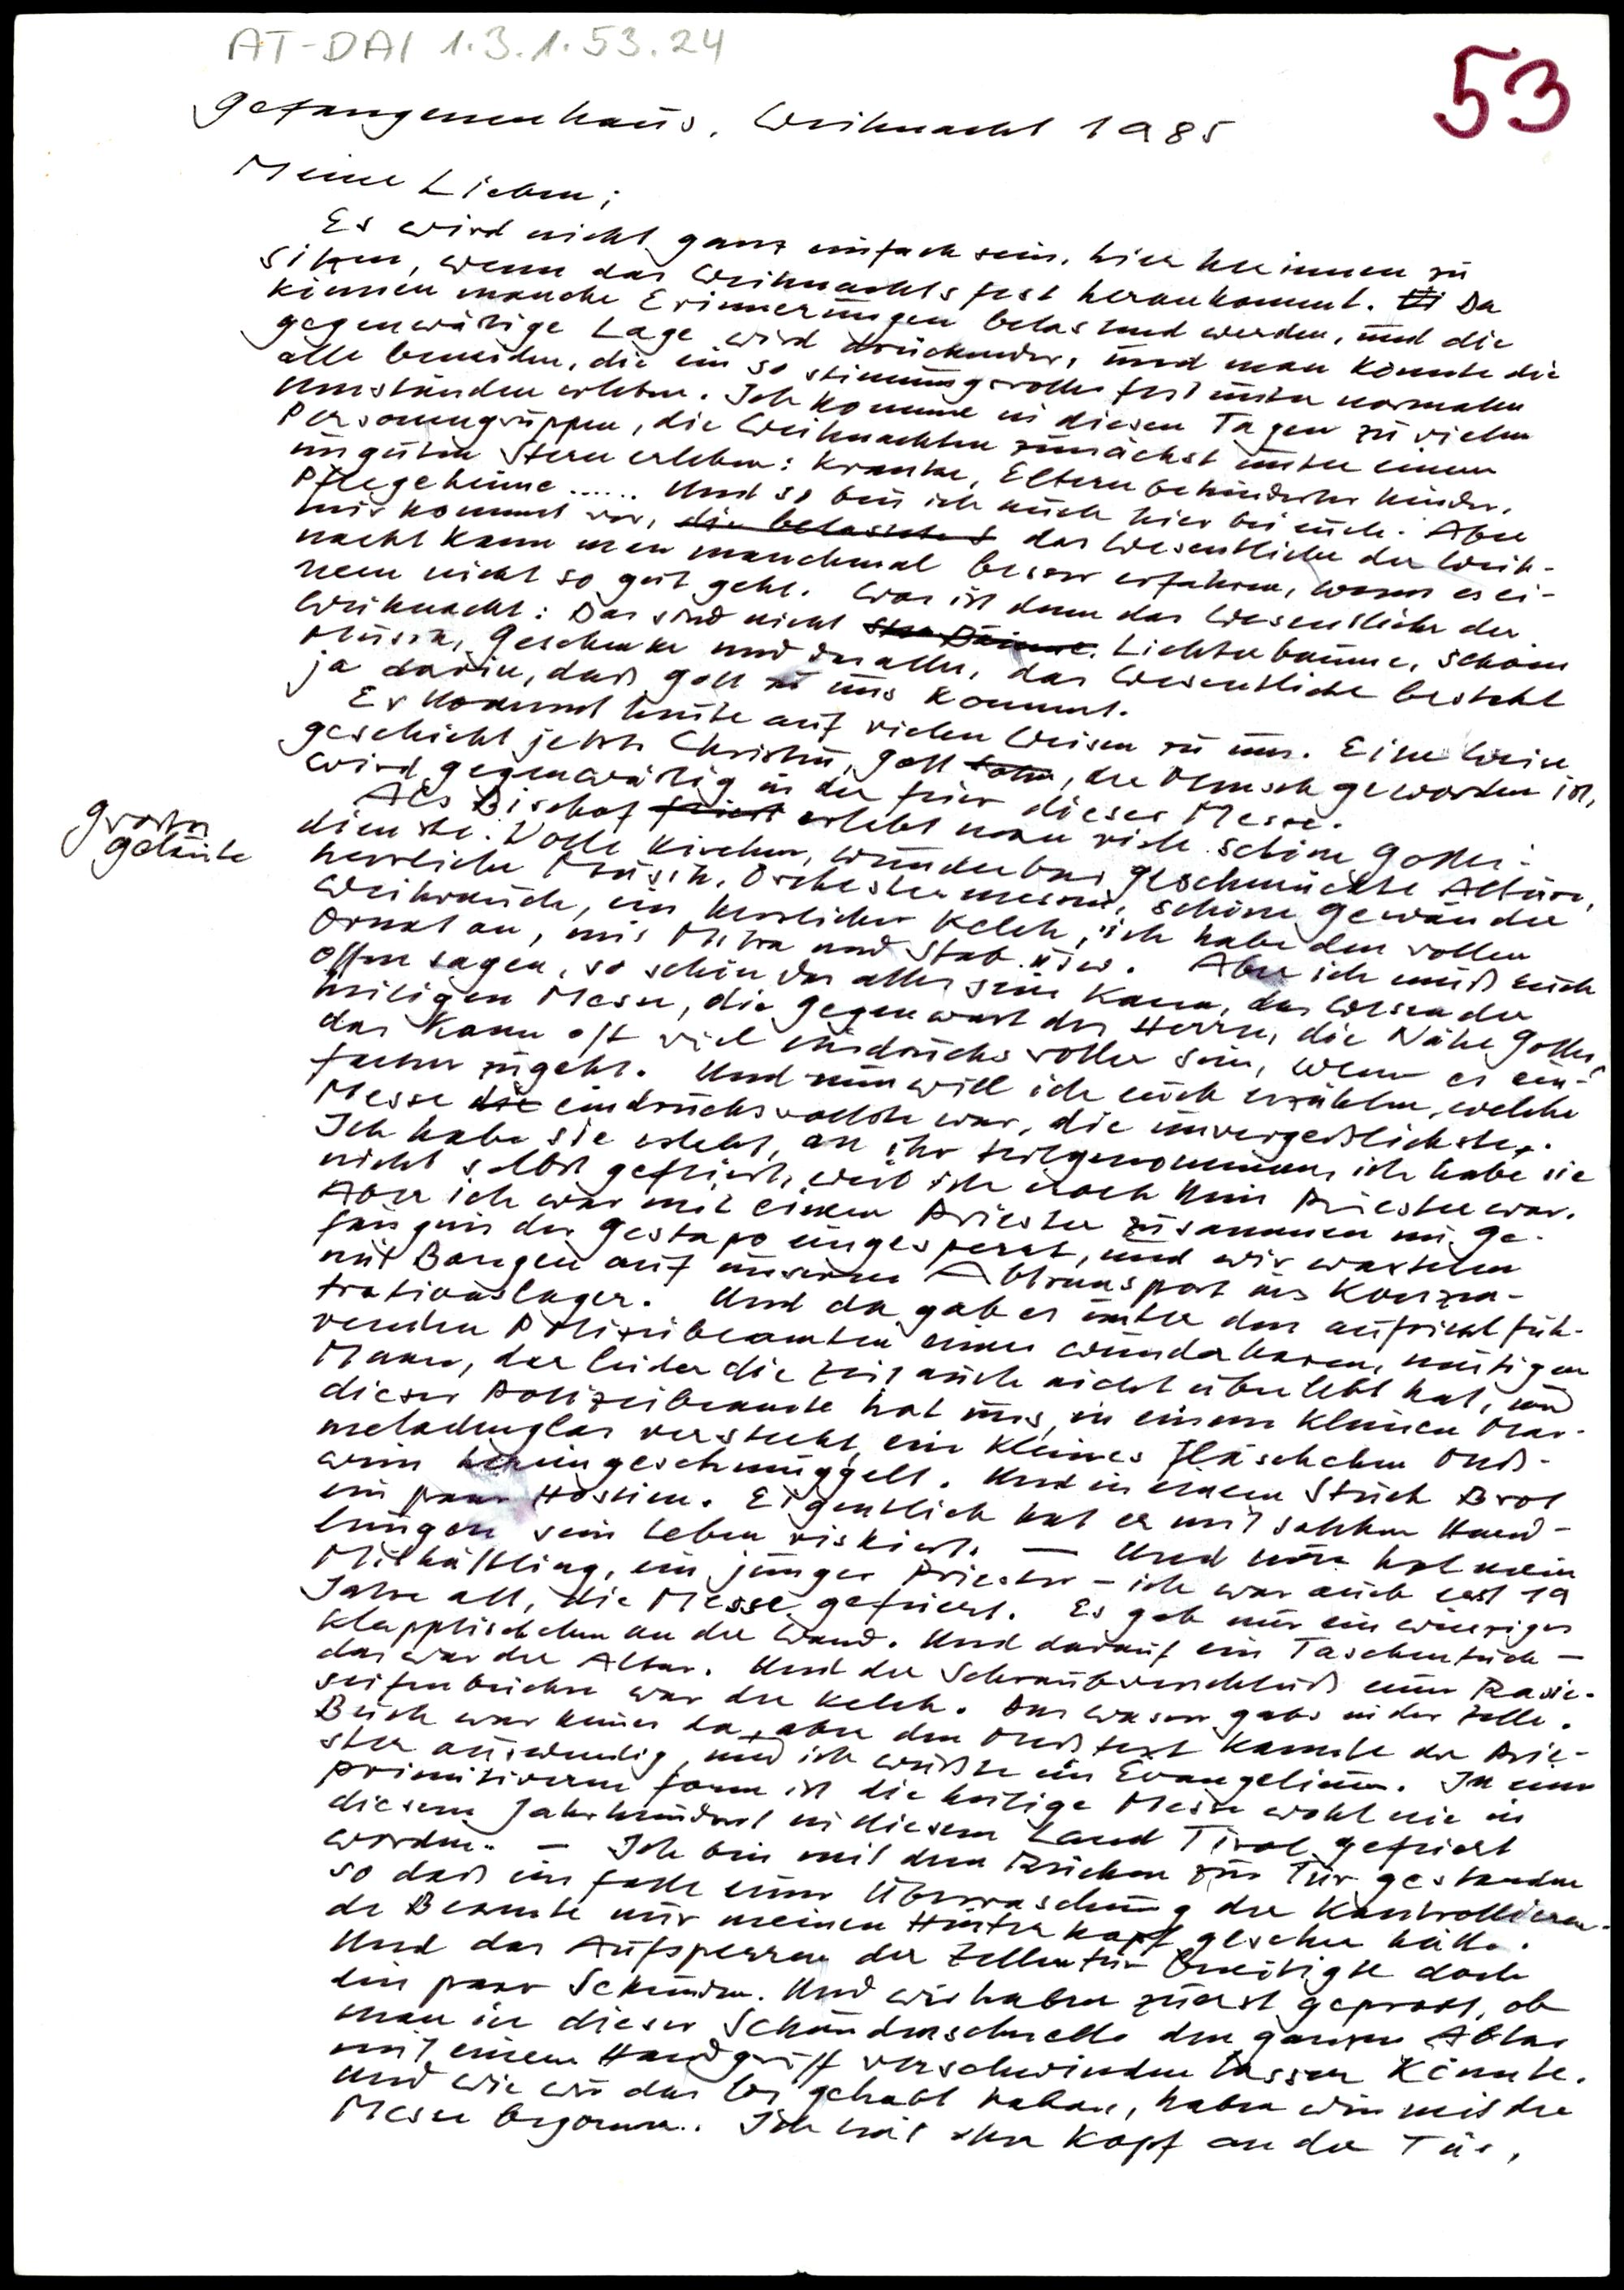 AT-DAI 1.3.1.53.24
53
Gefangenenhaus, Weihnacht 1985
Meine Lieben;
Es wird nicht ganz einfach sein, hier herinnen zu
sitzen, wenn das Weihnachtsfest herankommt. Da
können manche Erinnerungen belastend werden, und die
gegenwärtige Lage wird drückender, und man könnte die
alle beneiden, die ein so stimmungsvolles Fest unter normalen
Umständen erleben. Ich komme in diesen Tagen zu vielen
Personengruppen, die Weihnachten zunächst unter einem
unguten Stern erleben: Kranke, Eltern behinderter Kinder,
Pflegeheime...... Und so bin ich auch hier bei euch. Aber
mir kommt vor, die belastet das Wesentliche der Weih-
nacht kann man manchmal besser erfahren, wenn es ei-
nem nicht so gut geht. Was ist denn das Wesentliche der
Weihnacht: Das sind nicht Lichterbäume, schöne
Musik, Geschenke und das alles, das Wesentliche besteht
ja darin, daß Gott zu uns kommt.
Er kommt heute auf vielen Weisen zu uns. Eine Weise
geschieht jetzt: Christus, Gott Sohn, der Mensch geworden ist,
wird gegenwärtig in der Feier dieser Messe.
Als Bischof feiert erlebt man viele schöne Gottes-
großes
Geläute
dienste. Volle Kirchen, wunderbar geschmückte Altäre,
herrliche Musik, Orchestermessen, schöne Gewänder
Weihrauch, ein herrlicher Kelch, ich habe den vollen
Ornat an, mit Mitra und Stab usw. Aber ich muß euch
offen sagen, so schön das alles sein kann, das Wesen der
heiligen Messe, die Gegenwart des Herrn, die Nähe Gottes,
das kann oft viel eindrucksvoller sein, wenn es ein-
facher zugeht. Und nun will ich euch erzählen, welche
Messe die eindrucksvollste war, die unvergeßlichste.
Ich habe sie erlebt, an ihr teilgenommen, ich habe sie
nicht selbst gefeiert, weil ich noch kein Priester war.
Aber ich war mit einem Priester zusammen im Ge-
fängnis der Gestapo eingesperrt, und wir warteten
mit Bangen auf unseren Abtransport ins Konzen-
trationslager. Und da gab es unter den aufsichtfüh-
renden Polizeibeamten einen wunderbaren, mutigen
Mann, der leider die Zeit auch nicht überlebt hat, und
dieser Polizeibeamte hat uns, in einem kleinen Mar-
meladenglas versteckt, ein kleines Fläschchen Meß-
wein hereingeschmuggelt. Und in einem Stück Brot
ein paar Hostien. Eigentlich hat er mit solchen Hand-
lungen sein Leben riskiert. — Und nun hat mein
Mithäftling, ein junger Priester - ich war auch erst 19
Jahre alt, die Messe gefeiert. Es gab nur ein winziges
Klapptischchen an der Wand. Und darauf ein Taschentuch -
das war der Altar. Und der Schraubverschluß einer Rasier-
seifenbüchse war der Kelch. Das Wasser gabs in der Zelle.
Buch war keines da, aber den Meßtext kannte der Prie-
ster auswendig, und ich wußte ein Evangelium. In einer
primitiveren Form ist die heilige Messe wohl nie in
diesem Jahrhundert in diesem Land Tirol gefeiert
worden. - Ich bin mit dem Rücken zur Tür gestanden
so daß im Falle einer Überraschung der kontrollieren-
de Beamte nur meinen Hinterkopf gesehen hätte.
Und das Aufsperren der Zellentür benötigte doch
ein paar Sekunden. Und wir haben zuerst geprobt, ob
man in dieser Sekundenschnelle den ganzen Altar
mit einem Handgriff verschwinden lassen könnte.
Und wie wir das los gehabt haben, haben wir mit der
Messe begonnen. Ich mit dem Kopf an der Tür,